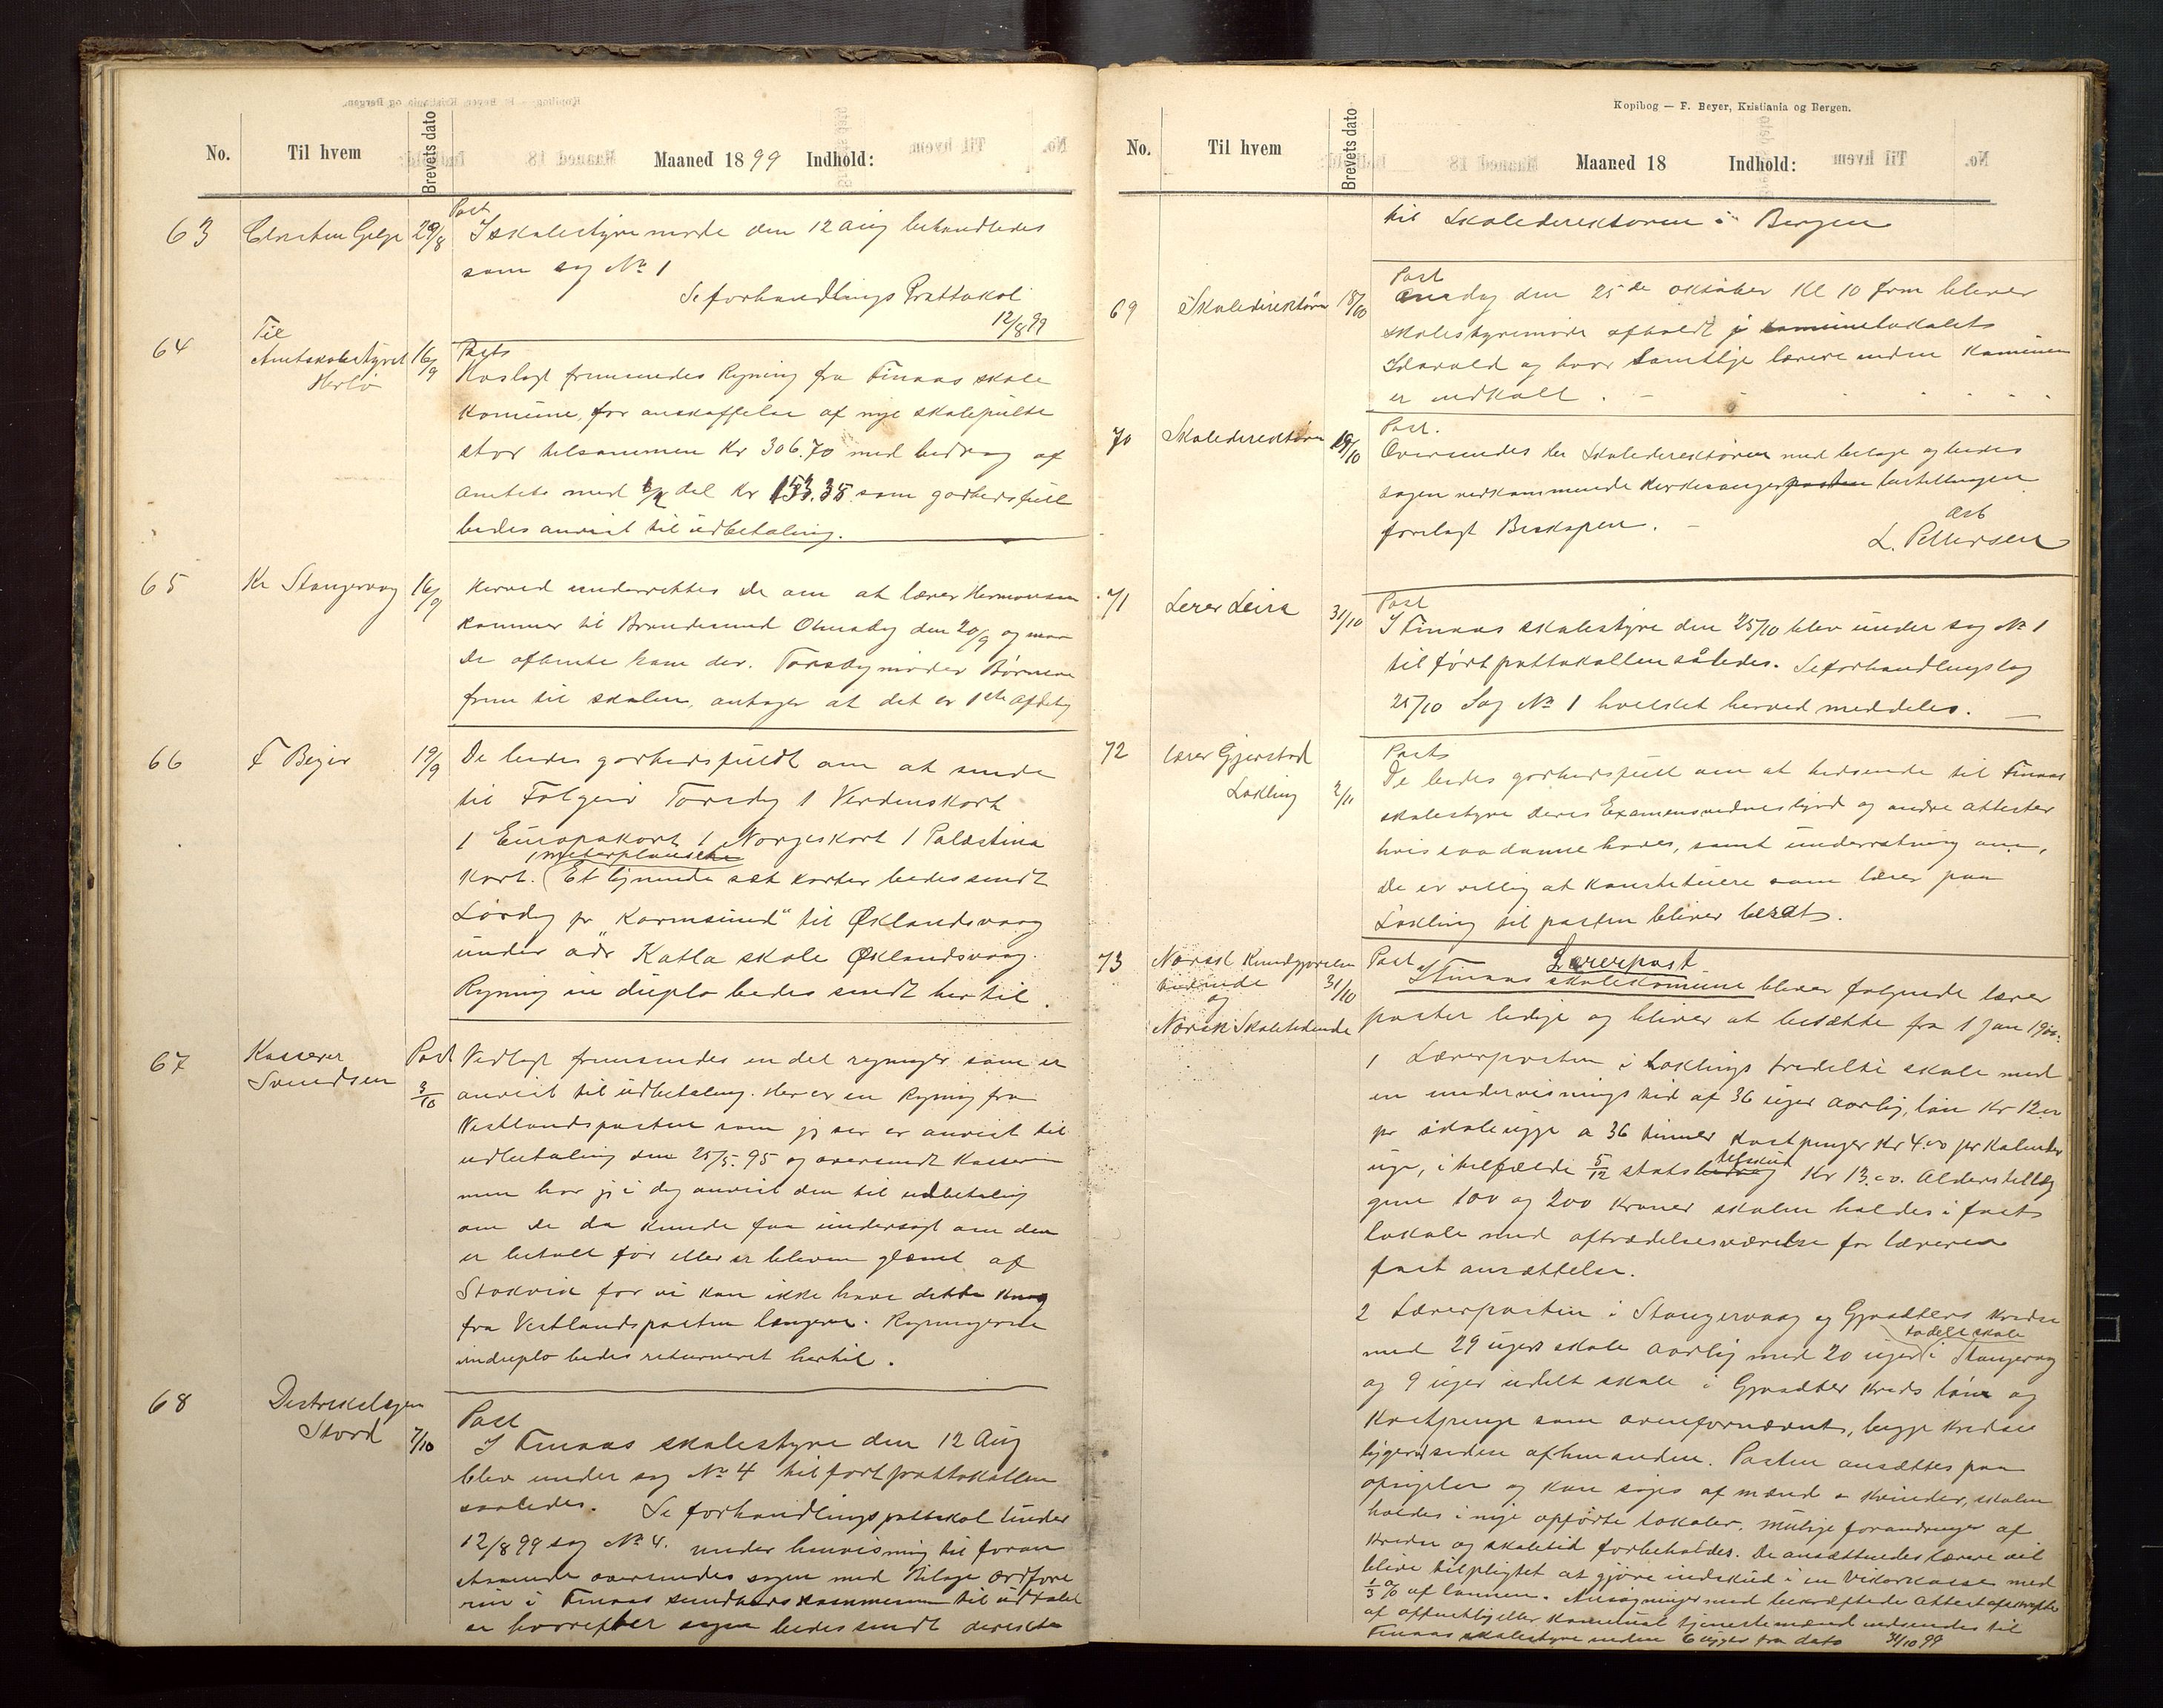 No. Til hvem Brevets dato Maaned 1899 Indhold:
63 29/8 Post
I skolestyremøde den 12 Aug behandledes
som sag No 1
Se forhandlings Prottokol
12/8 99
64 Til Amtskolestyret Herlø 16/9 Post
Vedlagt fremsendes Regning fra Finaas skole
komune, for anskaffelse af nye skolepulte
stor tilsammen Kr 306.70 med bedrag af
amtets med 1/2 del Kr 153.35 som godhedsfult
bedes anvist til udbetaling.
65 Kr Stangervag 16/9
Herved underrettes De om at lærer Hermansen
kommer til Brandesund Onsdag den 20/9 og maa
De afhente ham der. Torsdag møder Børnene
frem til skolen, antager at det er 1ste afdelg
66 F Beyer 19/9
De bedes godhedsfuldt om at sende
til Folgerø Torsdag 1 Verdenskort
1 Europakort 1 Norgeskort 1 Palæstina
1 meterplansche
kort. (Et lignende sæt karter bedes sendt
Lørdag pr "Karmsund" til Øklandsvaag
under adr Katla skole Øklandsvaag.
Regning in duplo bedes sendt hertil.
67 Kasserer Svendsen Post 3/10
Vedlagt fremsendes en del regninger som er
anvist til udbetaling. Her er en Regning fra
Vestlandsposten som jeg ser er anvist til
udbetaling den 25/5.95 og oversendt Kasserer
men har jeg i dag anvist den til udbetaling
om De da kunde faa undersøgt om den
er betalt før eller er bleven glæmt af
Stokvik for vi kan ikke have dette krag
fra Vestlandsposten længere. Regningerne
induplo bedes returneret hertil.
68 Destriktslægen Stord 7/10
Post
I Finaas skolestyre den 12 Aug
blev under sag No 4 tilført prottokollen
saaledes. Se forhandlings prottokol under
12/8 99 sag No 4. under henvisning til foran
staaende oversendes sagen med Bilage ordføre
ren i Finaas sundhedskommission til udtalel
se hvorefter sagen bedes sendt derekte
Kopibog — F. Beyer, Kristiania og Bergen.
No. Til hvem Brevets dato Maaned 18 Indhold:
til Skoledirektøren i Bergen
69 Skoledirektøren 18/10 Post
Onsdag den 25de oktober Kl 10 frm bliver
skolestyremøde afholdt i komunelokalet
og hvor Samtlige lærere inden Kamunen
er indkalt.
70 Skoledirektøren 19/10 Post.
Oversendes Hr Skoledirektøren med bilage og bedes
sagen vedkommende Kirkesangerposten bestillingen
forelagt Biskopen.
arb
L. Pettersen
71 Lærer Leira 31/10 Post
I Finaas skolestyre den 25/10 blev under sag No 1
tilført pottokollen således. Se forhandlingsbog
25/10 Sag No 1 hvilket herved meddeles.
72 Lærer Gjerstad Løkling 2/11 Post
De bedes godhedsfult om at indsende til Finaas
skolestyre deres Examensvidnesbyrd og andre attester
hvis saadanne haves, samt underretning om,
De er villig at konstituere som lærer paa
Løkling til posten bliver besat.
73 Norsk Kundgjørelse tidende og Norsk Skoletidende 31/10 Post
Lærerpost
I Finaas skolekomune bliver følgende lærer
poster ledige og bliver at besætte fra 1 Jan 1900.
1 Lærerposten i Løklings tredelte skole med
en undervisnings tid af 36 uger aarlig, løn Kr 12.00
pr skoleuge a 36 timer kostpenger Kr 4.00 pr Kalender
uge, i tilfælde 5/12 stats bidrag tilskud Kr 13.00. Alderstillæg
gene 100 og 200 Kroner skolen holdes i fast
lokale med aftrædelsesværelse for læreren
fast ansættelse.
2 Lærerposten i Stangervaag og Kredse
med 29 ugers skole aarlig med 20 uger todelt skole i Stangervag
og 9 uger udelt skole i Kreds løn og
Kostpenge som ovenfornævnt, begge Kredse
ligger ved siden afhinanden. Posten ansættes paa
opsigelse og kan søges af mænd o Kvinder, skolen
holdes i nye opførte lokaler. Mulige forandringer af
Kredse og skoletid forbeholdes. De ansættendes lærere vil
blive tilpligtet at gjøre indskud i en Vikarkasse med
1/3 % af lønnen. Ansøgninger med bekræftede Attestafskrifter
af offentlig eller Komunal tjenestemænd indsendes til
Finaas skolestyre inden 6 uger fra dato 31/10 99